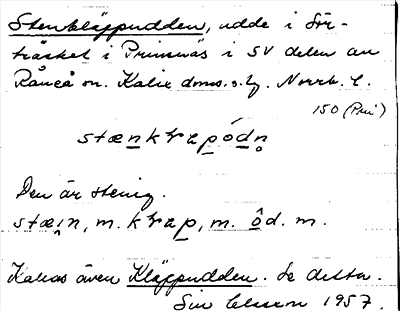 Stenkläppudden, udde i Sör-
träsket i Prinsnäs i SV delen av
Råneå sn. Kalix doms.s.lg. Norrb. l.
150 (Pri)
stænkrapódn̥
Den är stenig.
stæi̯n, m. krap, m. ôd. m.
Kallas även Kläppudden. Se detta.
Siv Olsson 1957.